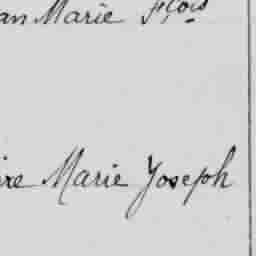 an Marie Fçois
re Marie Joseph